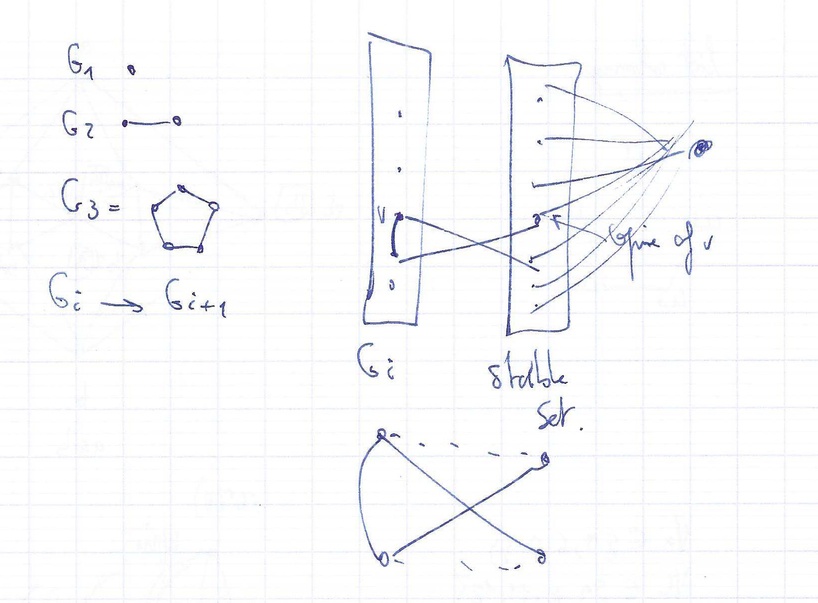 G1
G2
G3 =
Gi → Gi+1
V
of v
Gi
Stable
Set.